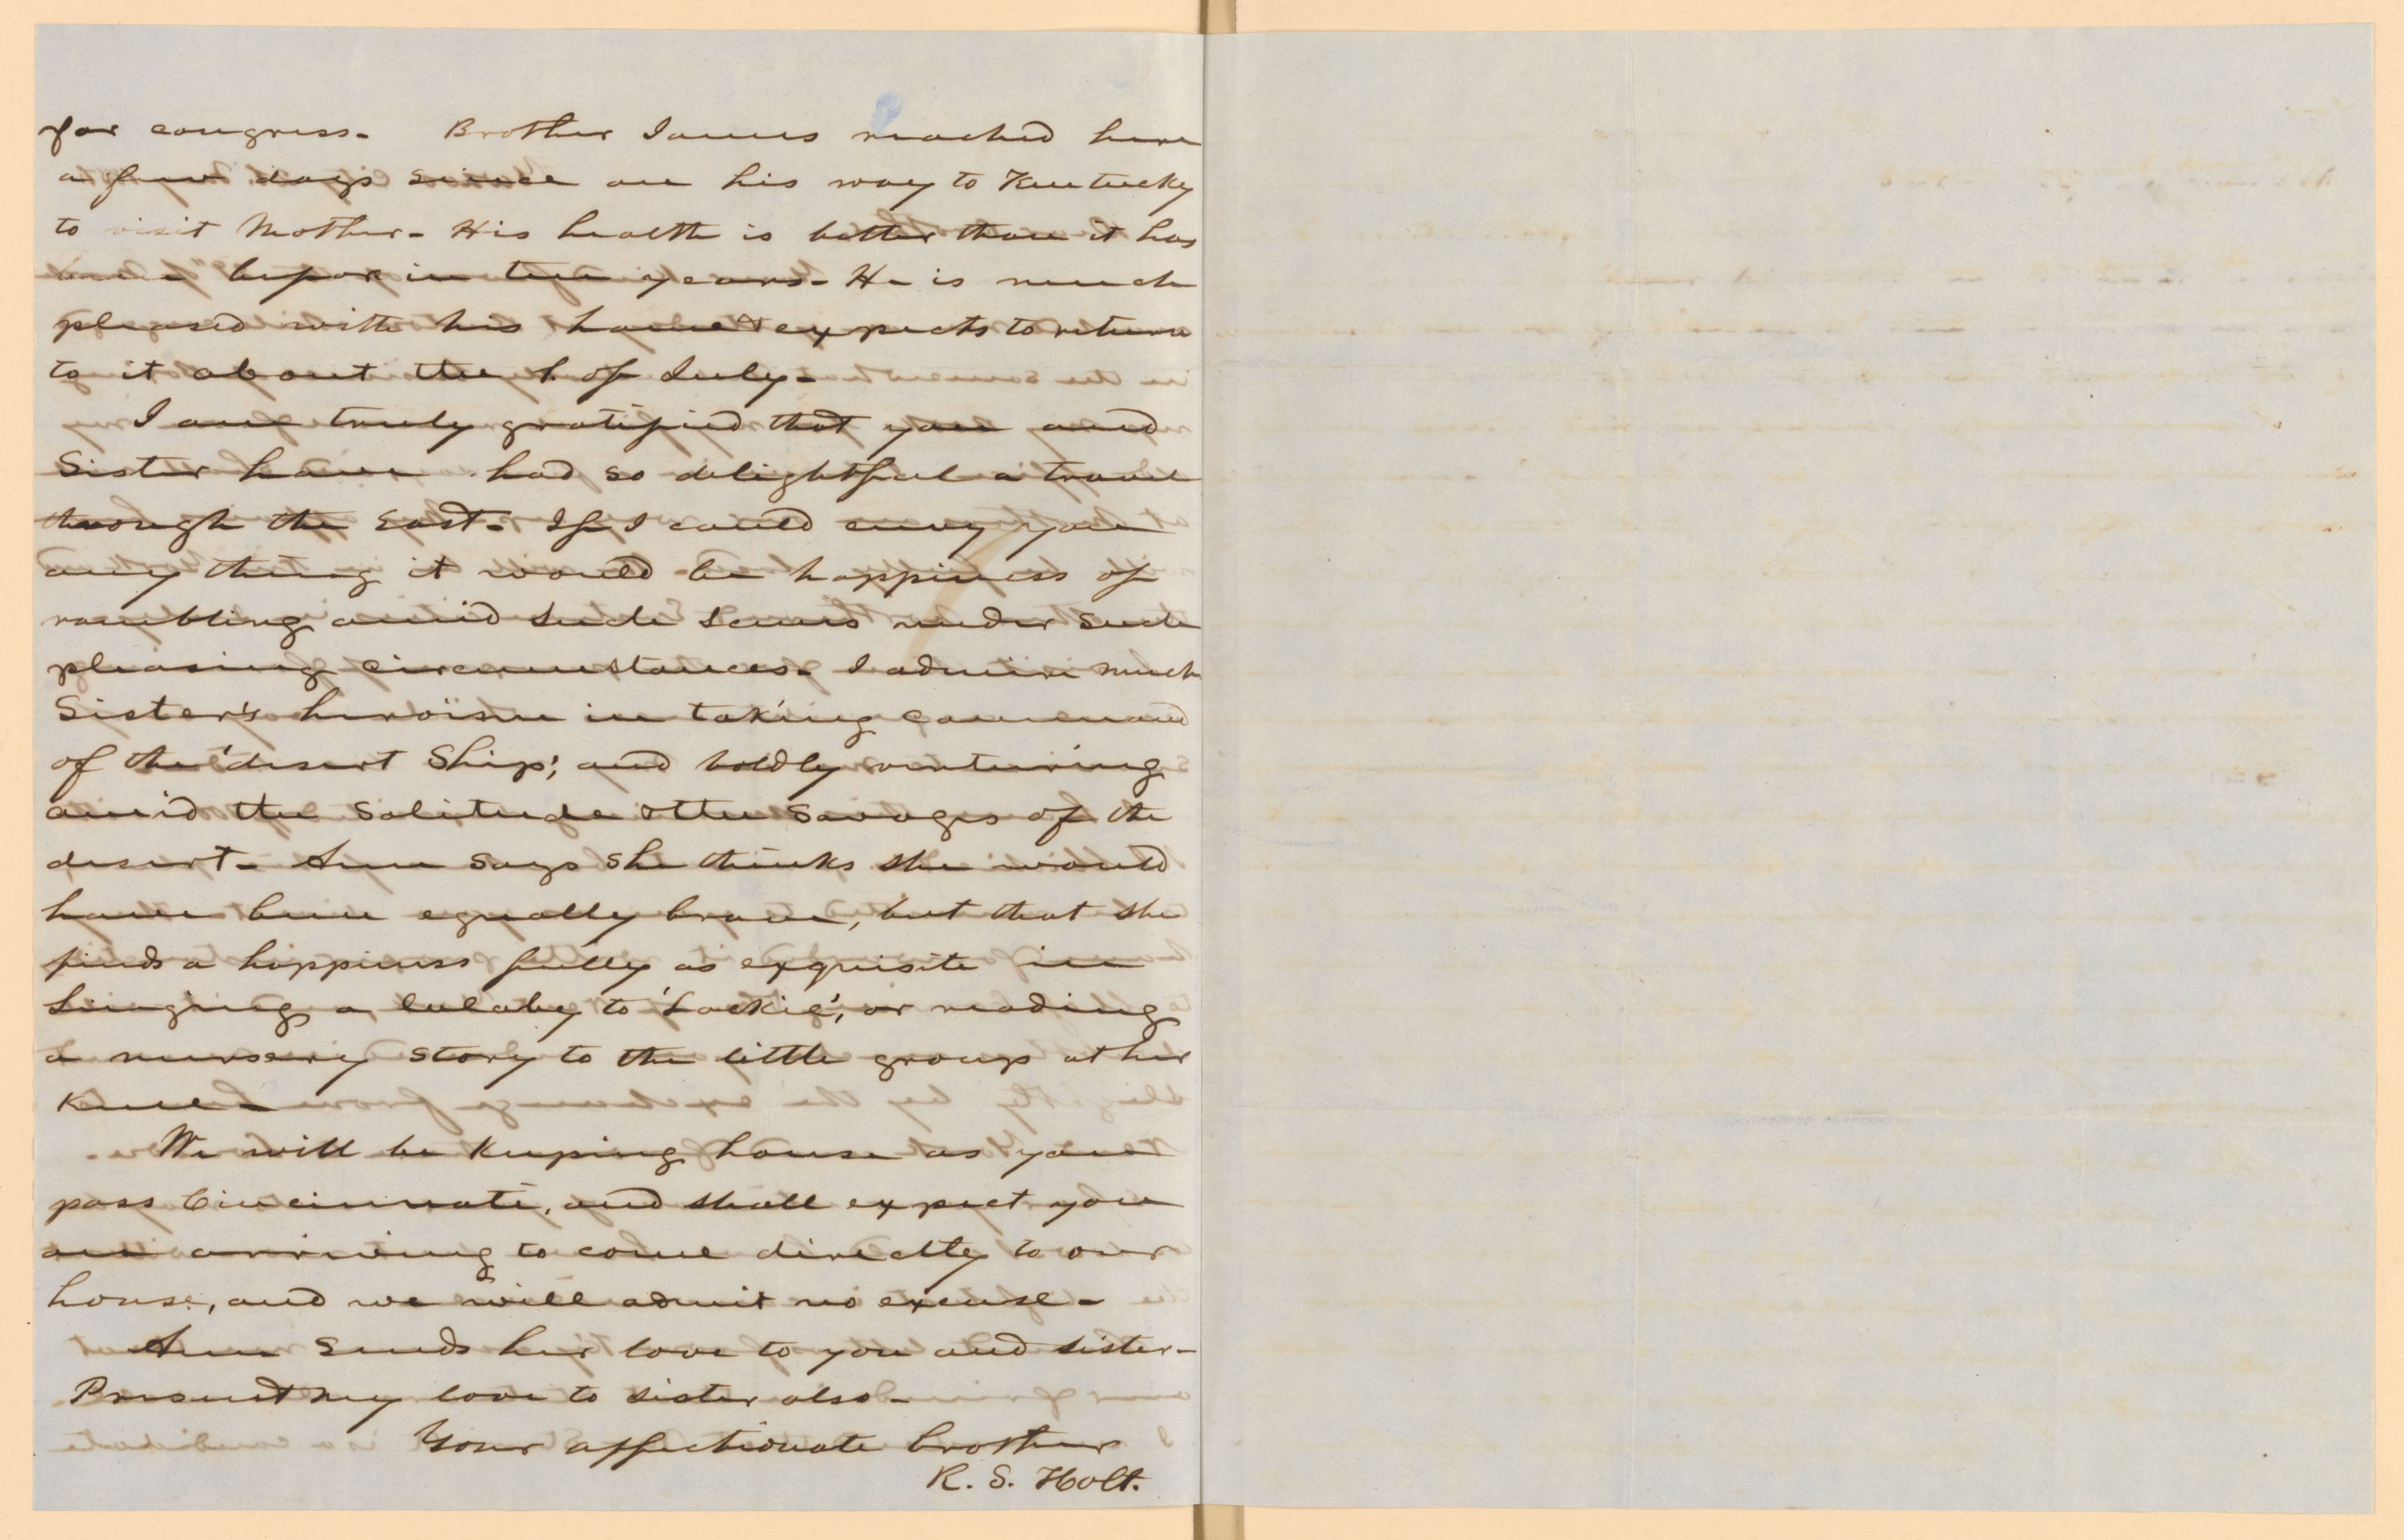 for congress- Brother James reached here
a few days since on his way to Kentucky
to visit Mother- His health is better than it has
been before in ten years- He is much
pleased with his home & expects to return
to it about the 1. of July-
I am truly gratified that you and
Sister have had so delightful a travel
through the East- If I could envy you
any thing it would be happiness of
rambling amid such scenes under such
pleasing circumstances- I admire much
Sister's heroism in taking command
of the 'desert Ship', and boldly venturing
amid the solitude & the savages of the
desert- Ann says she thinks she would
have been equally brave, but that she
finds a happiness fully as exquisite in
singing a lulaby to 'Lockie', or reading
a nursery story to the little group at her
knee-
We will be keeping house as you
pass Cincinnati, and shall expect you
on arriving to come directly to our
house, and we will admit no excuse-
Ann sends her love to you and sister-
Present my love to sister also-
Your affectionate brother
R. S. Holt.